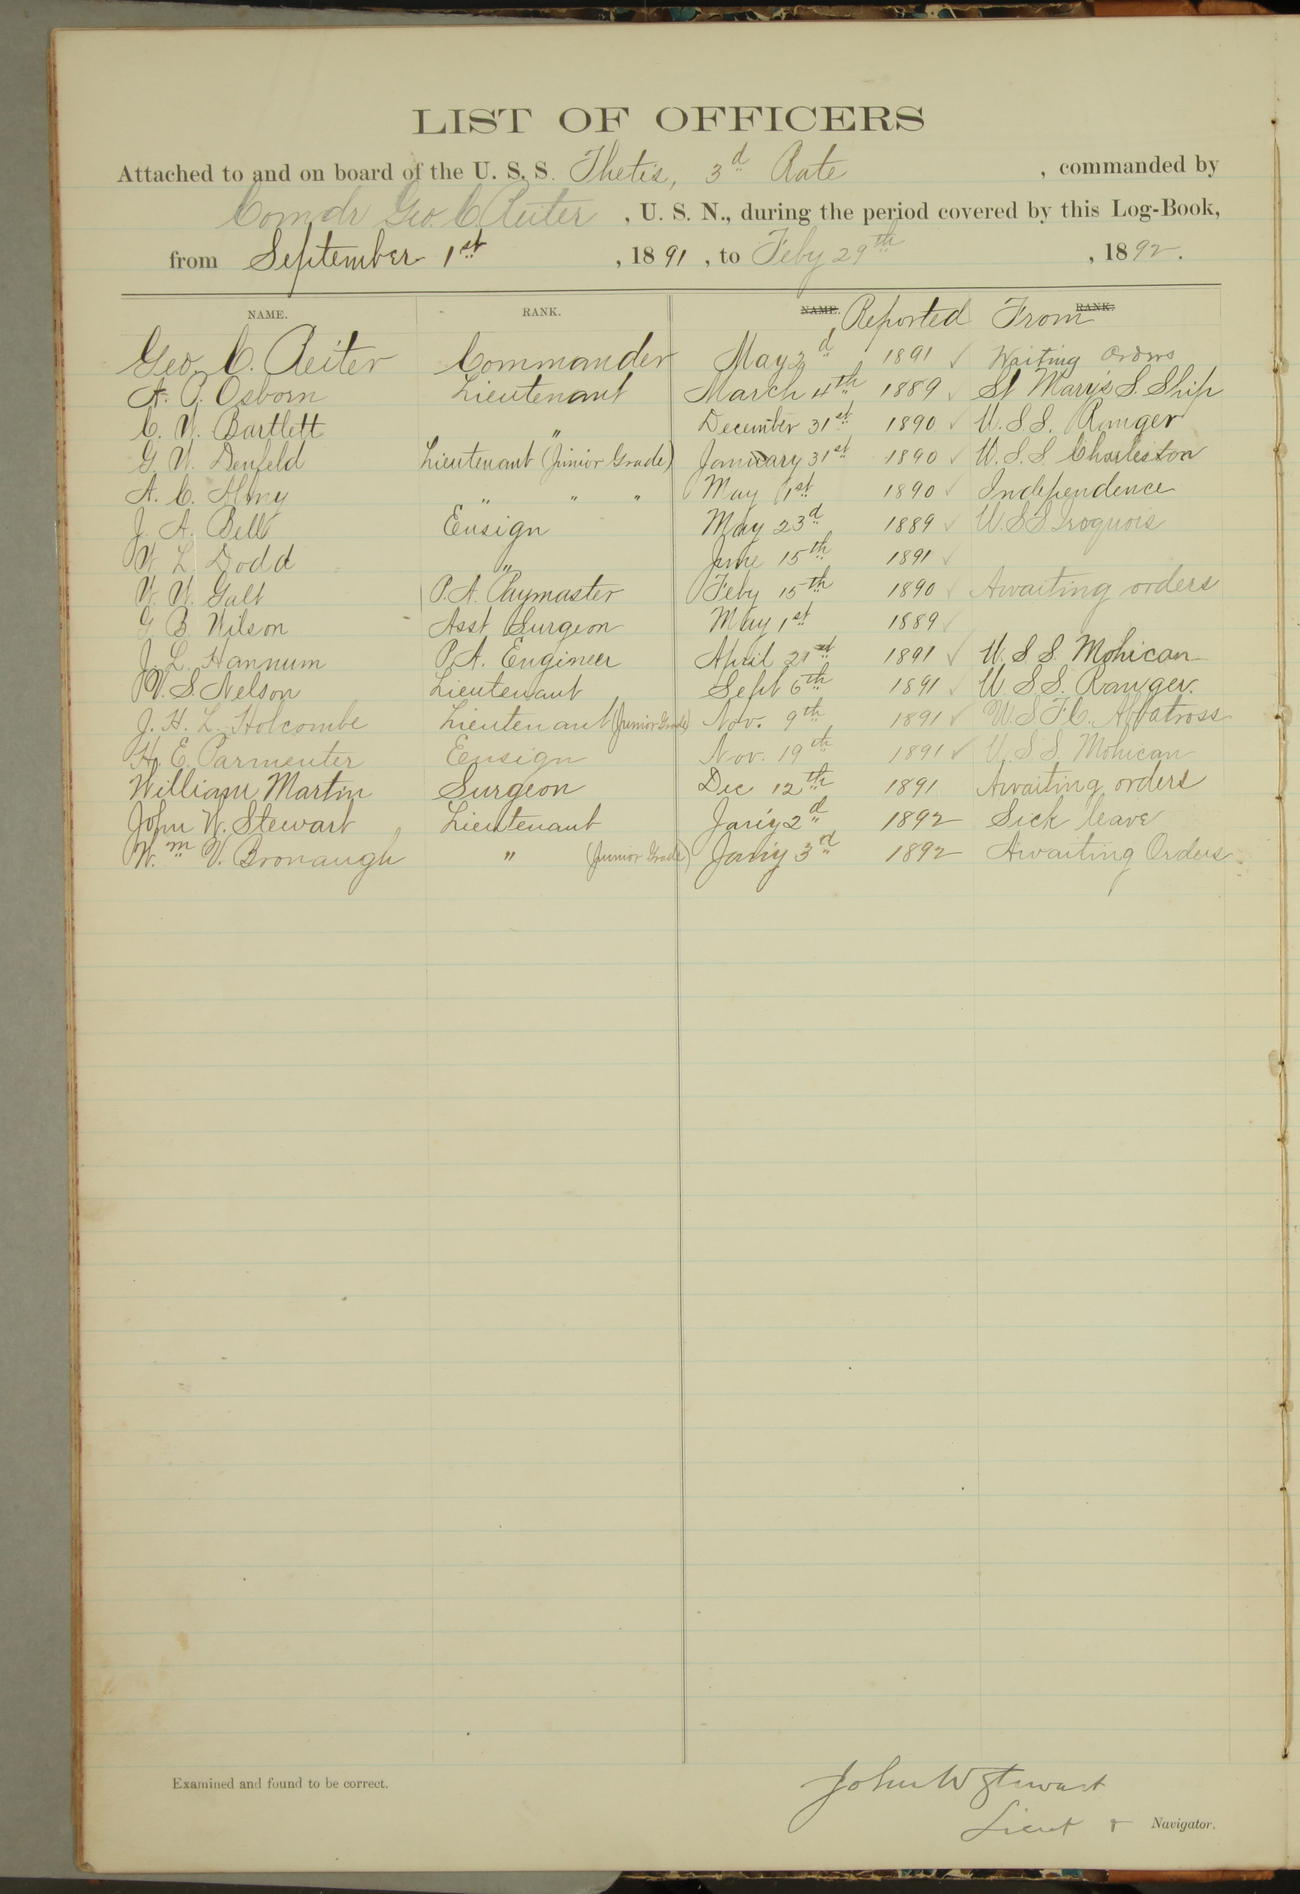 LIST OF OFFICERS
Attached to and on board of the U. S. S. Thetis, 3d Rate , commanded by
Comdr Geo. C. Reiter , U. S. N., during the period covered by this Log-Book,
from September 1st , 1891 , to Feby 29th , 1892.
NAME. RANK. NAME. Reported From RANK.
Geo. C. Reiter Commander May 2d 1891 ✓ Waiting orders
A. P. Osborn Lieutenant March 4th 1889 ✓ St Mary's S. Ship
C. W. Bartlett " December 31st 1890 ✓ U.S.S. Ranger
G. W. Denfeld Lieutenant (Junior Grade) January 31st 1890 ✓ U.S.S. Charleston
A. C. Almy " " " May 1st 1890 ✓ Independence
J. A. Bell Ensign May 23d 1889 ✓ U.S.S. Iroquois
W. L. Dodd " June 15th 1891 ✓
W. W. Galt P.A. Paymaster Feby 15th 1890 ✓ Awaiting orders
G. B. Wilson Asst Surgeon May 1st 1889 ✓
J. L. Hannum P.A. Engineer April 21st 1891 ✓ U.S.S. Mohican
V. S. Nelson Lieutenant Sept 6th 1891 ✓ U.S.S. Ranger.
J. H. L. Holcombe Lieutenant (Junior Grade) Nov. 9th 1891 ✓ U.S.F.C. Albatross
H. E. Parmenter Ensign Nov. 19th 1891 ✓ U.S.S. Mohican
William Martin Surgeon Dec 12th 1891 Awaiting orders
John W. Stewart Lieutenant Jan'y 2d 1892 Sick leave
Wm V. Bronaugh " (Junior Grade) Jan'y 3d 1892 Awaiting Orders
Examined and found to be correct.
John W Stewart
Lieut & Navigator.